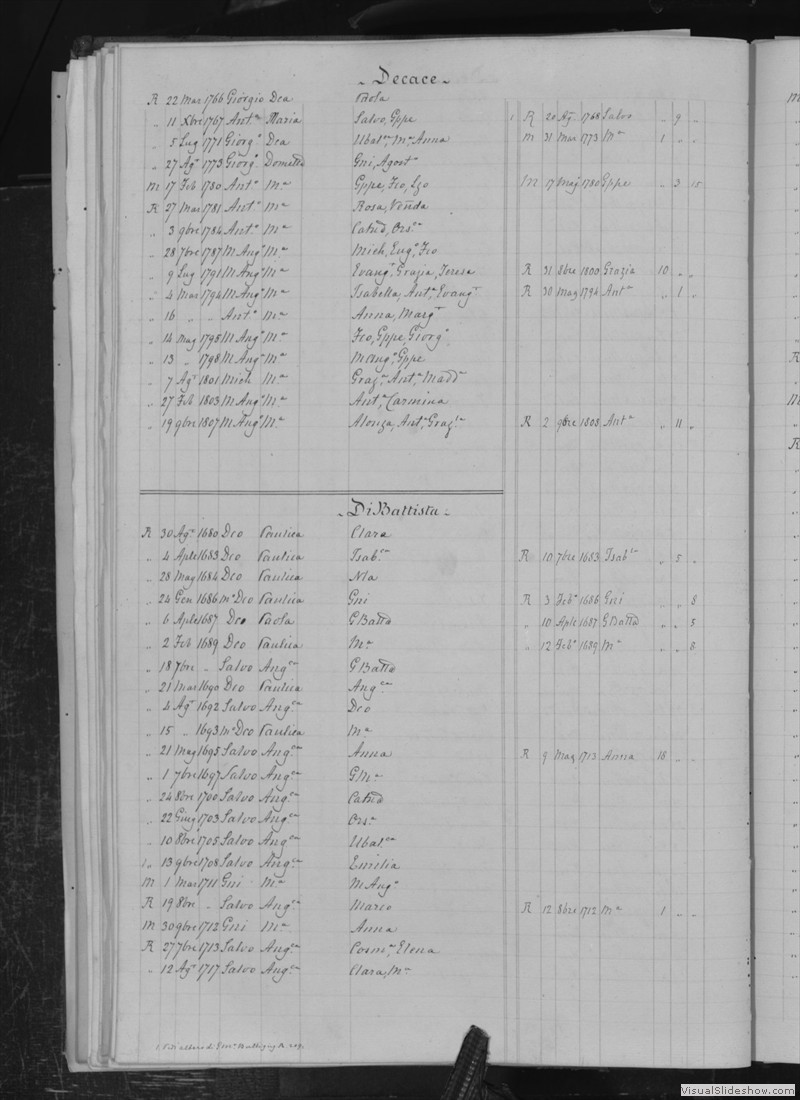 Decace
R 22 Mar 1766 Giorgio Dea Paola
" 11 Xbre 1767 Antᵒ Maria Salvo, Gppe 1 R 20 Agᵗ 1768 Salvo " 9 "
" 5 Lug 1771 Giorgᵒ Dea Ubalᵃ, Mᵃ Anna M 31 Mar 1773 Mᵃ 1 " "
" 27 Agᵗ 1773 Giorgᵒ Gni, Agost
M 17 Feb 1780 Antᵒ Mᵃ Gppe, Fco, M 17 Mag 1780 Gppe " 3 15
R 27 Mar 1781 Antᵒ Mᵃ Rosa,
" 3 9bre 1784 Antᵒ Mᵃ Catnd, Orsᵃ
" 28 7bre 1787 M Angᵒ Mᵃ Mich, Eugᵒ, Fco
" 9 Lug 1791 M Angᵒ Mᵃ Evangᵗ, Grazia, Teresa R 31 8bre 1800 Grazia 10 " "
" 4 Mar 1794 M Angᵒ Mᵃ Isabella, Antᵃ, Evangᵗ R 30 Mag 1794 Antᵃ " 1 "
" 16 " " Antᵒ Mᵃ Anna, Margᵗ
" 14 Mag 1795 M Angᵒ Mᵃ Fco, Gppe, Giorgᵒ
" 13 " 1798 M Angᵒ Mᵃ M Angᵒ, Gppe
" 7 Agᵗ 1801 Mich Mᵃ Grazᵃ, Antᵃ, Maddᵃ
" 27 Feb 1803 M Angᵒ Mᵃ Antᵃ, Carmina
" 19 9bre 1807 M Angᵒ Mᵃ Alonza, Antᵃ, Grazᵃ R 2 9bre 1808 Antᵃ " 11 "
Di Battista
R 30 Agᵗ 1680 Dco Paulica Clara
" 4 Aple 1683 Dco Paulica Isabˡᵃ R 10 7bre 1683 Isabˡᵃ " 5 "
" 28 Mag 1684 Dco Paulica Nla
" 24 Gen 1686 Mᵒ Dco Paulica Gni R 3 Febᵒ 1686 Gni " " 8
" 6 Aple 1687 Dco Paola G Batta " 10 Aple 1687 G Batta " " 5
" 2 Feb 1689 Dco Paulica Mᵃ " 12 Febᵒ 1689 Mᵃ " " 8
" 18 7bre " Salvo Angᶜᵃ G Batta
" 21 Mar 1690 Dco Paulica Angᶜᵃ
" 4 Agᵗ 1692 Salvo Angᶜᵃ Dco
" 15 " 1693 Mᵒ Dco Paulica Mᵃ
" 21 Mag 1695 Salvo Angᶜᵃ Anna R 9 Mag 1713 Anna 18 " "
" 1 7bre 1697 Salvo Angᶜᵃ G Mᵃ
" 24 8bre 1700 Salvo Angᶜᵃ Catnd
" 22 Giug 1703 Salvo Angᶜᵃ Orsᵃ
" 10 8bre 1705 Salvo Angᶜᵃ Ubalᶜᵃ
" 13 9bre 1708 Salvo Angᶜᵃ Emilia
M 1 Mar 1711 Gni Mᵃ M Angᵒ
R 19 8bre " Salvo Angᶜᵃ Marco R 12 8bre 1712 Mᵃ 1 " "
M 30 9bre 1712 Gni Mᵃ Anna
R 27 7bre 1713 Salvo Angᶜᵃ Cosmᵃ, Elena
" 12 Agᵗ 1717 Salvo Angᶜᵃ Clara, Mᵃ
1. Vidi albero di
VisualSlideshow.com